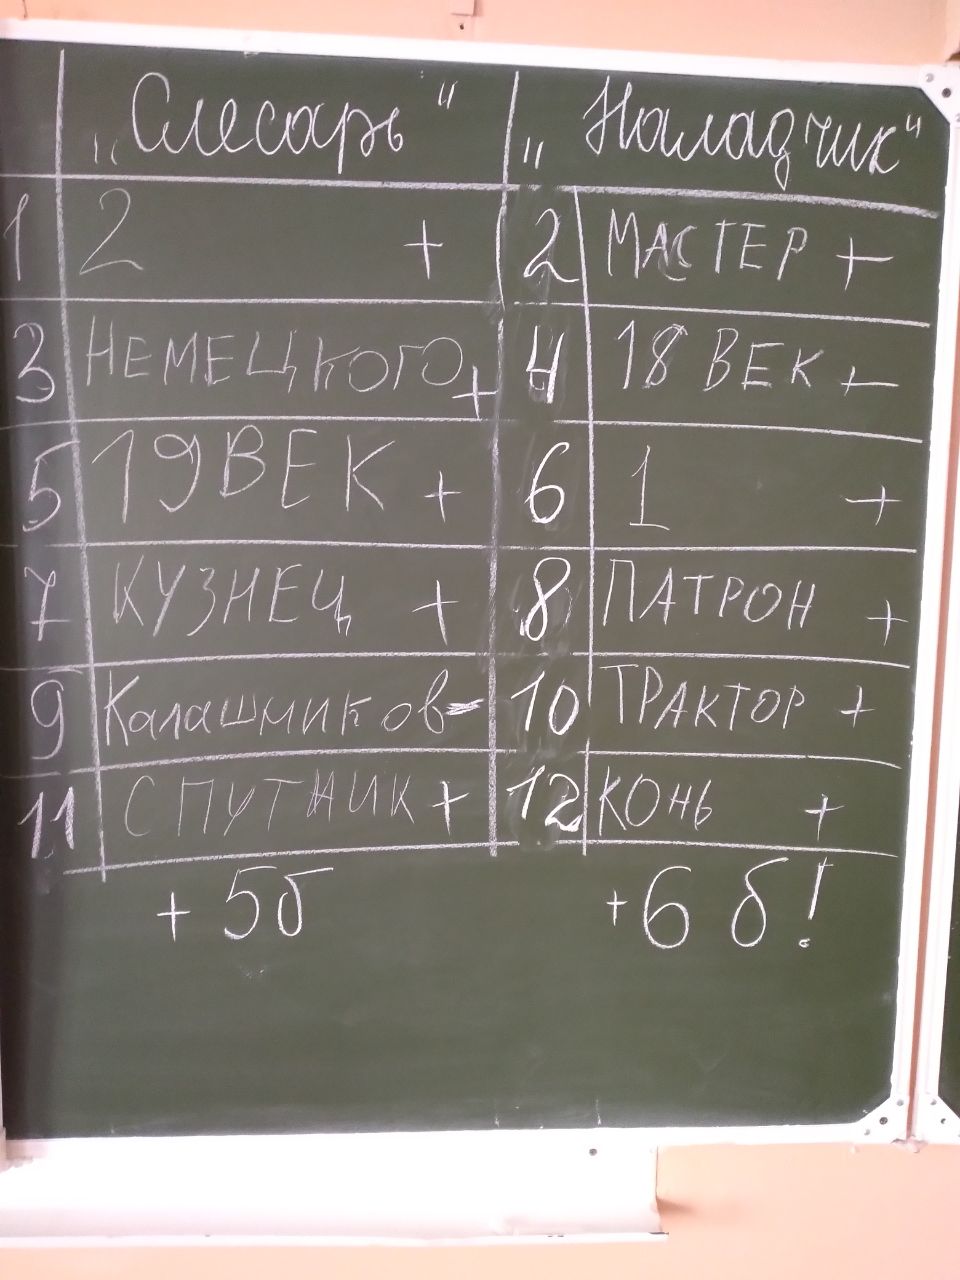 „Слесарь" „Наладчик"
1 2 + 2 МАСТЕР +
3 НЕМЕЦКОГО + 4 18 ВЕК +
5 19 ВЕК + 6 1 +
7 КУЗНЕЦ + 8 ПАТРОН +
9 Калашников - 10 ТРАКТОР +
11 СПУТНИК + 12 КОНЬ +
+ 5б + 6 б!